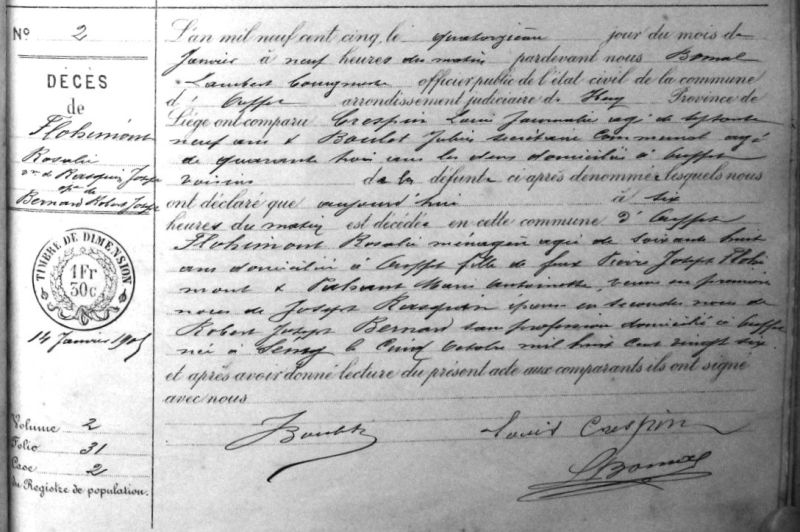 N° 2
DÉCÈS
de
Flohimont
Rosalie
ve de Rasquin Joseph
épse de
Bernard Robert Joseph
TIMBRE DE DIMENSION
1 Fr
30c
14 Janvier 1905
Volume 2
Folio 31
Case 2
du Registre de population.
L'an mil neuf cent cinq, le quatorzième jour du mois de
Janvier à neuf heures du matin pardevant nous Bomal
Lambert officier public de l'état civil de la commune
d' Ouffet arrondissement judiciaire de Huy Province de
Liége ont comparu Crespin Louis Journalier agé de septante
neuf ans & Boulet Jules secrétaire communal agé
de quarante trois ans les deux domiciliés à Ouffet
voisins de la défunte ci après dénommée lesquels nous
ont déclaré que aujourd'hui à six
heures du matin est décédée en cette commune d' Ouffet
Flohimont Rosalie ménagère agée de soixante huit
ans domiciliée à Ouffet fille de feux Pierre Joseph Flohi
mont & Marie Antoinette, veuve en premières
noces de Joseph Rasquin épouse en secondes noces de
Robert Joseph Bernard sans profession domicilié à Ouffet
née à le Cinq Octobre mil huit cent
et après avoir donné lecture du présent acte aux comparants ils ont signé
avec nous
J Boulet Louis Crespin
L Bomal